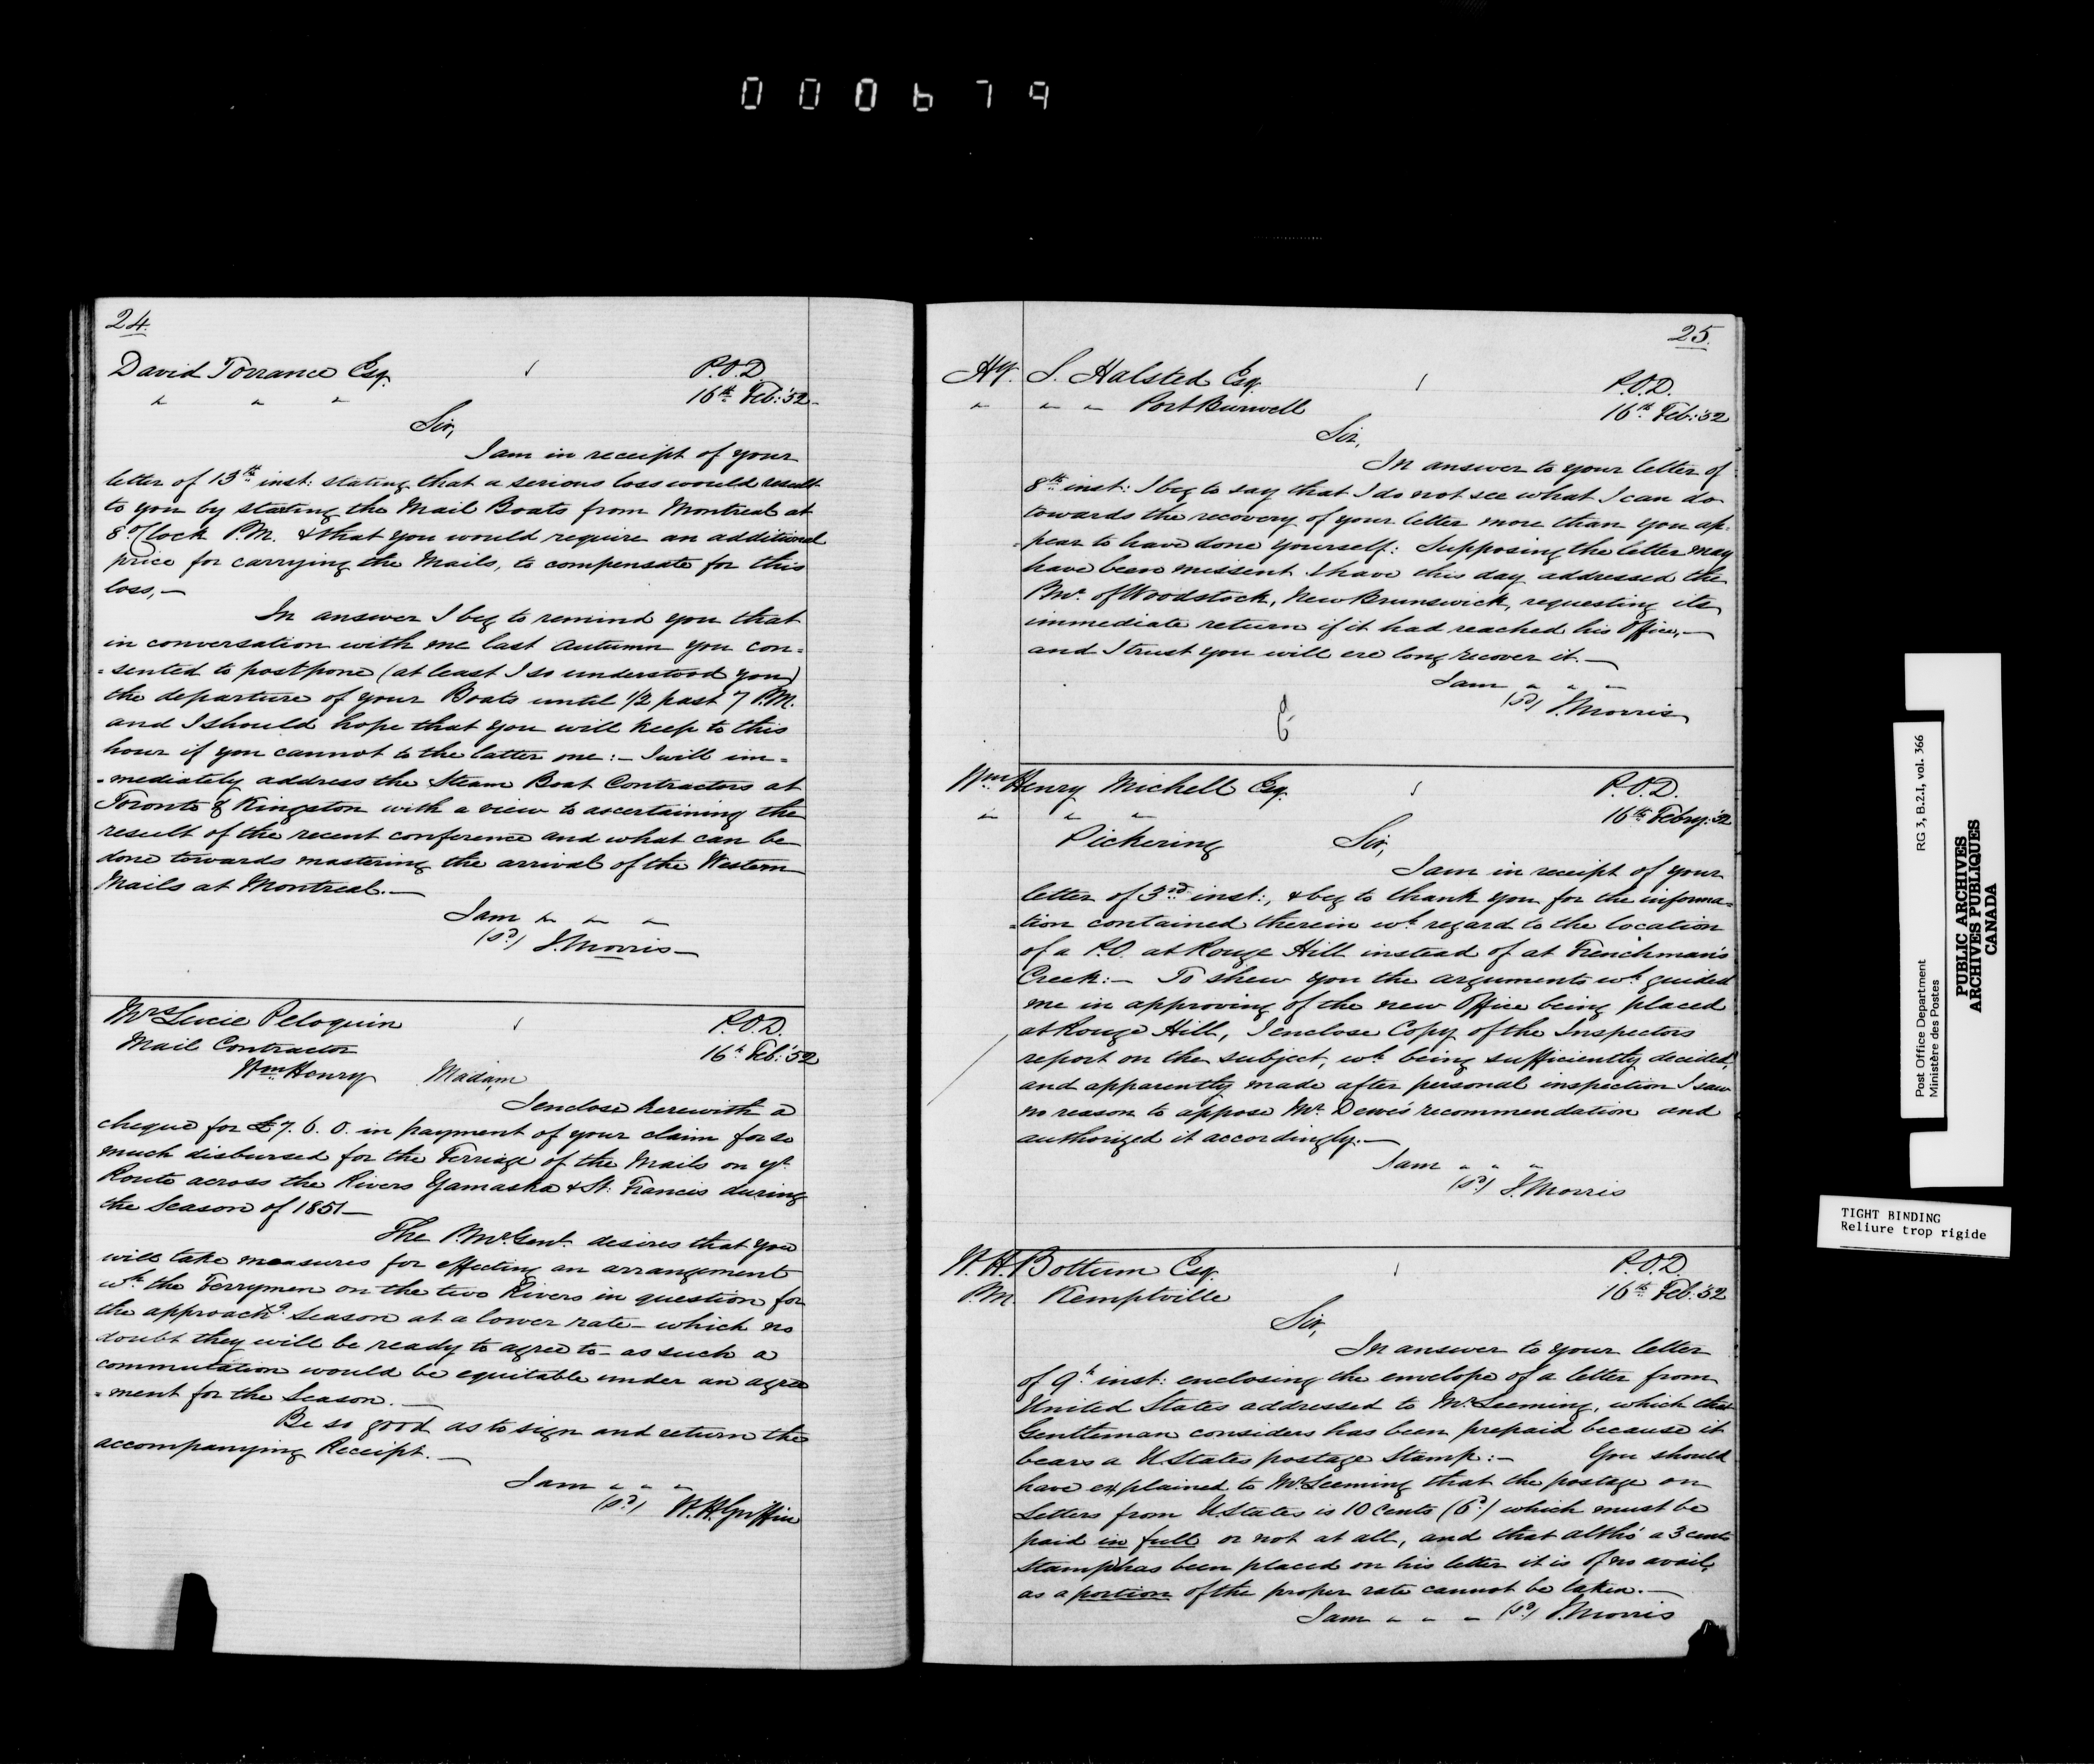 000679
24.
David Torrance Esq. P.O.D
" " " 16th Feb: '52
Sir,
I am in receipt of your
letter of 13th inst: stating that a serious loss would result
to you by starting the Mail Boats from Montreal at
8 O'Clock P.M. & that you would require an additional
price for carrying the Mails, to compensate for this
loss,—
In answer I beg to remind you that
in conversation with me last Autumn you con=
=sented to postpone (at least I so understood you)
the departure of your Boats until 1/2 past 7 P.M.
and I should hope that you will keep to this
hour if you cannot to the latter one:— I will im=
=mediately address the Steam Boat Contractors at
Toronto & Kingston with a view to ascertaining the
result of the recent conference and what can be
done towards mastering the arrival of the Western
Mails at Montreal.—
I am " " "
(sd) J. Morris—
Mrs Lucie Peloquin P.O.D.
Mail Contractor 16th Feb: '52
Wm Henry Madam,
I enclose herewith a
cheque for £7. 6. 0. in payment of your claim for so
much disbursed for the Ferriage of the Mails on yr
Route across the Rivers Yamaska & St. Francis during
the Season of 1851—
The P.Mr. Genl. desires that you
will take measures for effecting an arrangement
wh the Ferrymen on the two Rivers in question for
the approachg season at a lower rate— which no
doubt they will be ready to agree to— as such a
commutation would be equitable under an agree
=ment for the Season.—
Be so good as to sign and return the
accompanying Receipt.—
I am " " "
(sd) W.H. Griffin
25.
S. Halsted Esq. P.O.D.
" " " Port Burwell 16th Feb: '52
Sir,
In answer to your letter of
8th inst: I beg to say that I do not see what I can do
towards the recovery of your letter more than you ap-
=pear to have done yourself: Supposing the letter may
have been missent I have this day addressed the
PMr. of Woodstock, New Brunswick, requesting its
immediate return if it had reached his Office,—
and I trust you will ere long recover it.—
I am " " "
(sd) J. Morris
Wm Henry Michell Esq. P.O.D.
" " " 16th Febry. '52
Pickering Sir,
I am in receipt of your
letter of 3rd inst:, & beg to thank you for the informa=
=tion contained therein wh regard to the location
of a P.O. at Rouge Hill instead of at Frenchman's
Creek:— To shew you the arguments wh guided
me in approving of the new Office being placed
at Rouge Hill, I enclose Copy of the Inspectors
report on the subject, wh being sufficiently decided,
and apparently made after personal inspection I saw
no reason to oppose Mr. Dewe's recommendation and
authorized it accordingly.—
I am " " "
(sd) J. Morris
W.H. Bottum Esq. P.O.D.
P.M. Kemptville 16th Feb. '52
Sir,
In answer to your letter
of 9th inst: enclosing the envelope of a letter from
United States addressed to Mr. Leeming, which that
Gentleman considers has been prepaid because it
bears a U. States postage Stamp:— You should
have explained to Mr. Leeming that the postage on
Letters from U. States is 10 Cents (6d) which must be
paid in full or not at all, and that altho' a 3 cents
Stamp has been placed on his letter it is of no avail,
as a portion of the proper rate cannot be taken.—
I am " " " (sd) J. Morris
Post Office Department RG 3, B.2.I, vol. 366
Ministère des Postes
PUBLIC ARCHIVES
ARCHIVES PUBLIQUES
CANADA
TIGHT BINDING
Reliure trop rigide